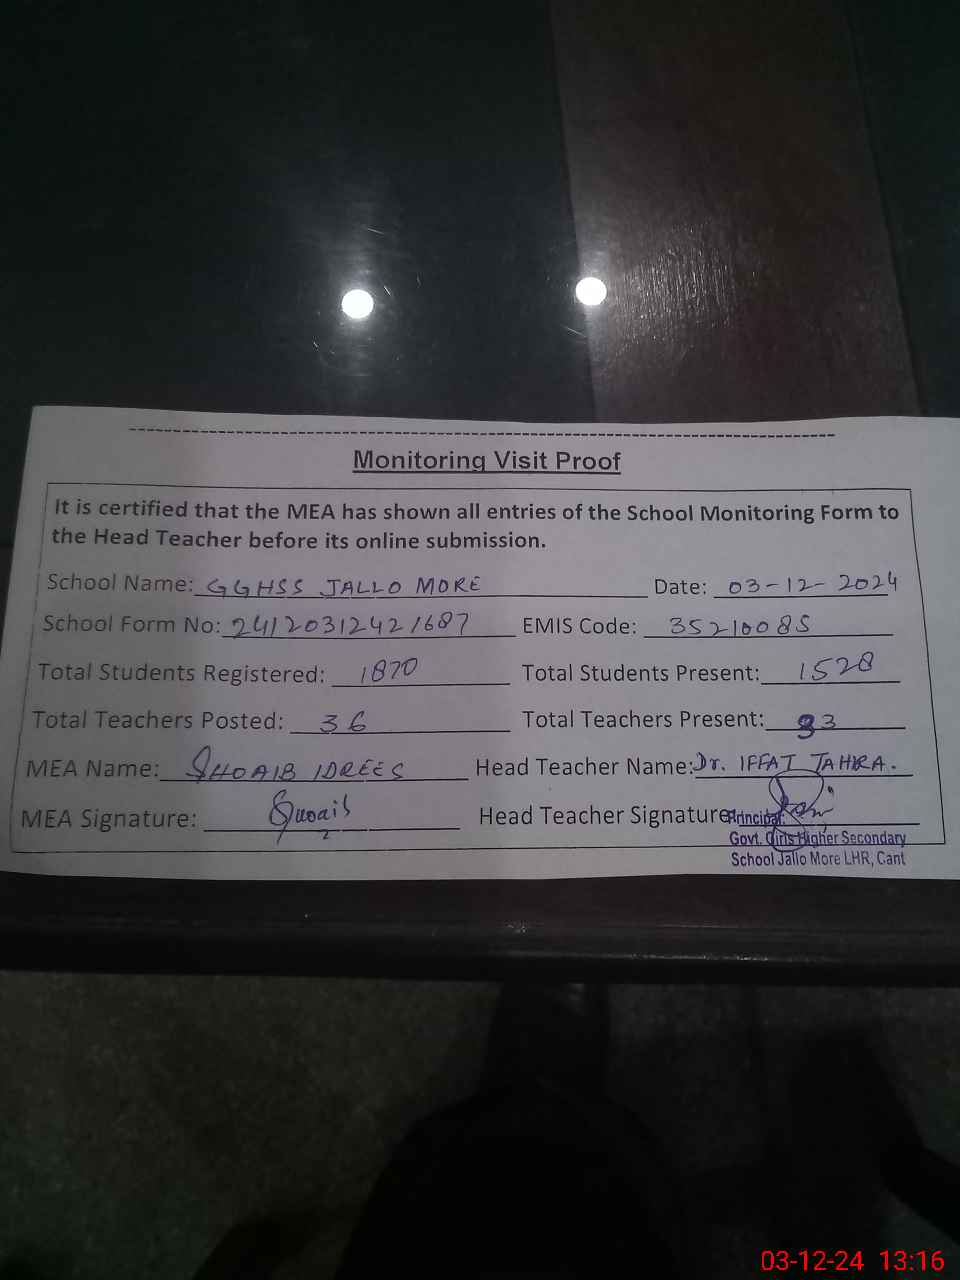 Monitoring Visit Proof
It is certified that the MEA has shown all entries of the School Monitoring Form to
the Head Teacher before its online submission.
School Name: GGHSS JALLO MORE Date: 03-12-2024
School Form No: 241203124421687 EMIS Code: 35210085
Total Students Registered: 1870 Total Students Present: 1528
Total Teachers Posted: 36 Total Teachers Present: 33
MEA Name: SHOAIB IDREES Head Teacher Name: Dr. IFFAT TAHIRA.
MEA Signature: Shoaib Head Teacher Signature:
Principal
Govt. Girls Higher Secondary
School Jallo More LHR, Cant
03-12-24 13:16